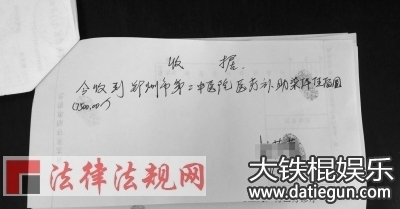 收据
今收到郑州市第二中医院医疗补助柒仟伍佰圆
(7500.00)
法律法规网
大铁棍娱乐
www.datiegun.com